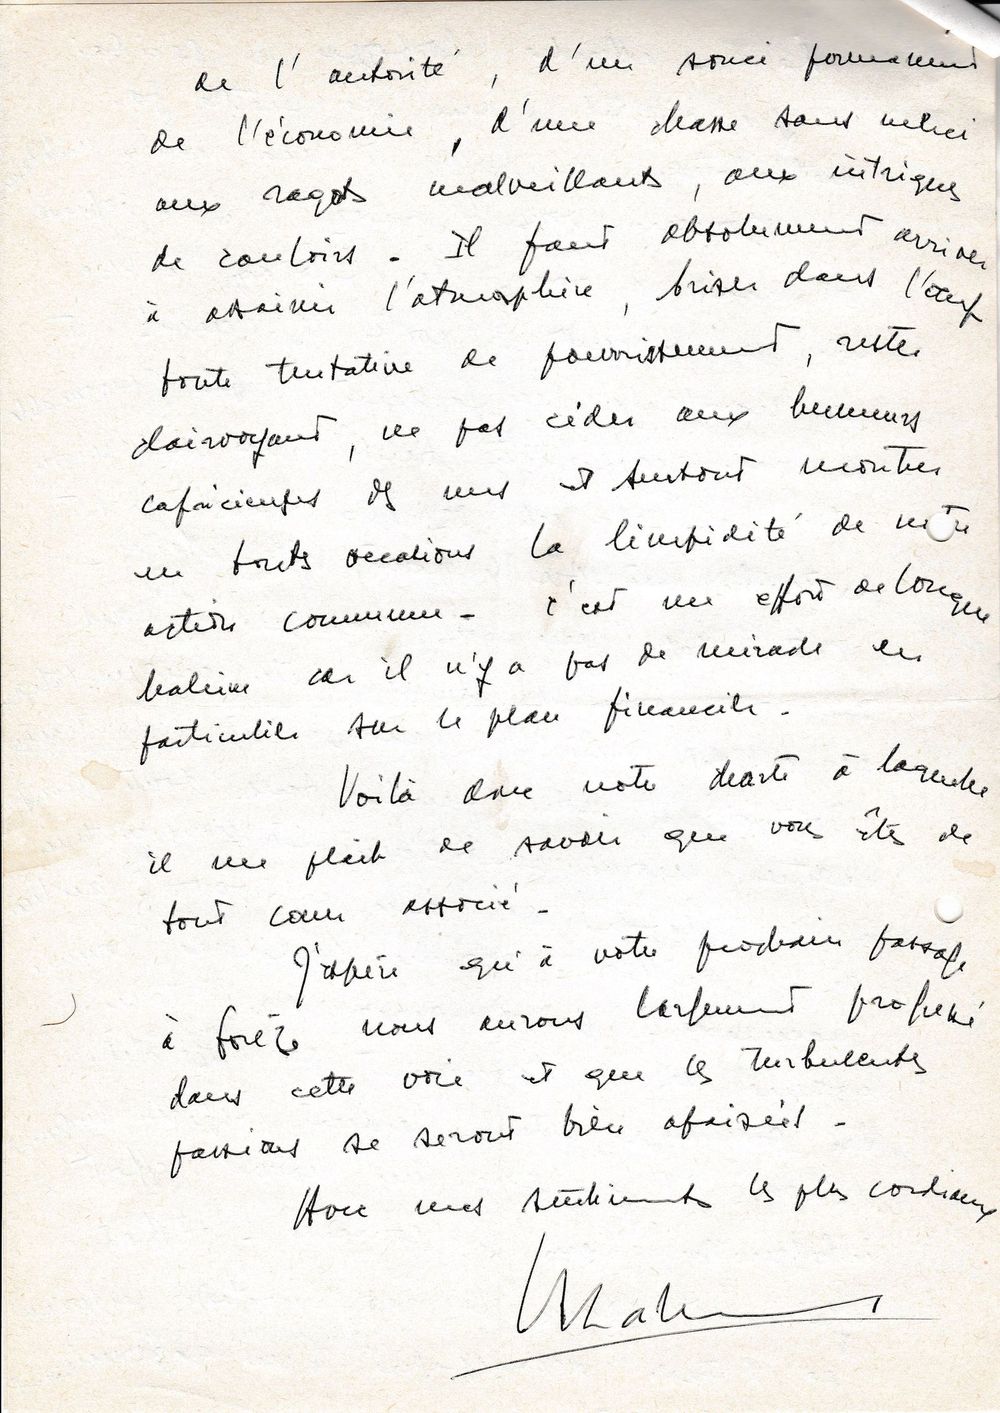 de l'autorité, d'un souci permanent
de l'économie, d'une chasse sans merci
aux ragots malveillants, aux intrigues
de couloirs - Il faut absolument arriver
à assainir l'atmosphère, briser dans l'œuf
toute tentative de pourrissement, rester
clairvoyant, ne pas céder aux humeurs
capricieuses des uns et surtout montrer
en toutes occasions la limpidité de notre
action commune - C'est un effort de longue
haleine car il n'y a pas de miracle en
particulier sur le plan financier -
Voilà donc notre charte à laquelle
il me plaît de savoir que vous êtes de
tout cœur associé -
J'espère qu'à votre prochain passage
à nous aurons largement progressé
dans cette voie et que les turbulentes
passions se seront bien apaisées -
Avec mes sentiments les plus cordiaux